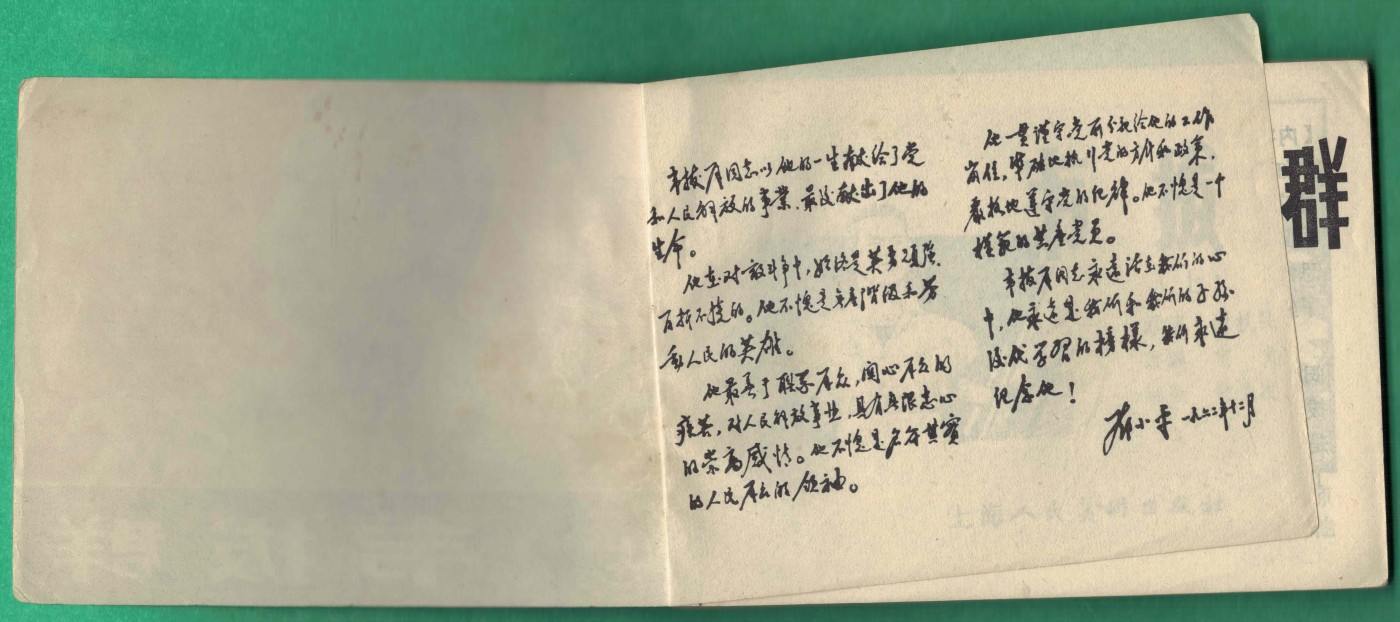 韦拔群同志以他的一生献给了党
和人民解放的事业，最后献出了他的
生命。
他在对敌斗争中，始终是英勇顽强，
百折不挠的。他不愧是无产阶级和劳
动人民的英雄。
他最善于联系群众，关心群众的
疾苦，对人民解放事业，具有无限忠心
的崇高感情。他不愧是名符其实
的人民群众的领袖。
他一贯谨守党所分配给他的工作
岗位，准确地执行党的方针和政策，
严格地遵守党的纪律。他不愧是一个
模范的共产党员。
韦拔群同志永远活在我们的心
中，他永远是我们和我们的子孙
后代学习的榜樣，我们永远
纪念他！
邓小平 一九六二年十二月
群
上海人民美術出版社